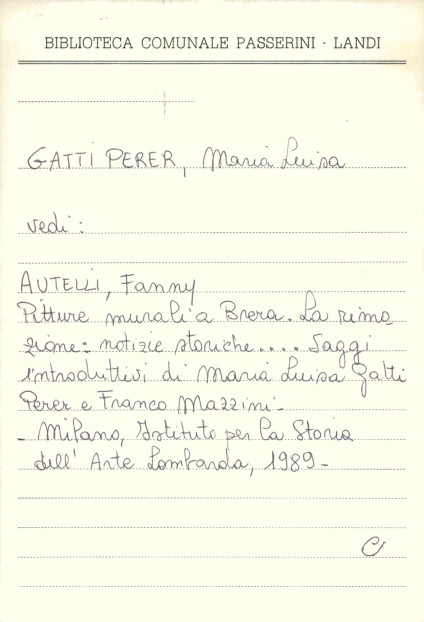 BIBLIOTECA COMUNALE PASSERINI - LANDI
GATTI PERER, Maria Luisa
vedi:
AUTELLI, Fanny
Pitture murali a Brera. La rimo
zione: notizie storiche.... Saggi
introduttivi di Maria Luisa Gatti
Perer e Franco Mazzini -
- Milano, Istituto per la Storia
dell' Arte Lombarda, 1989 -
C